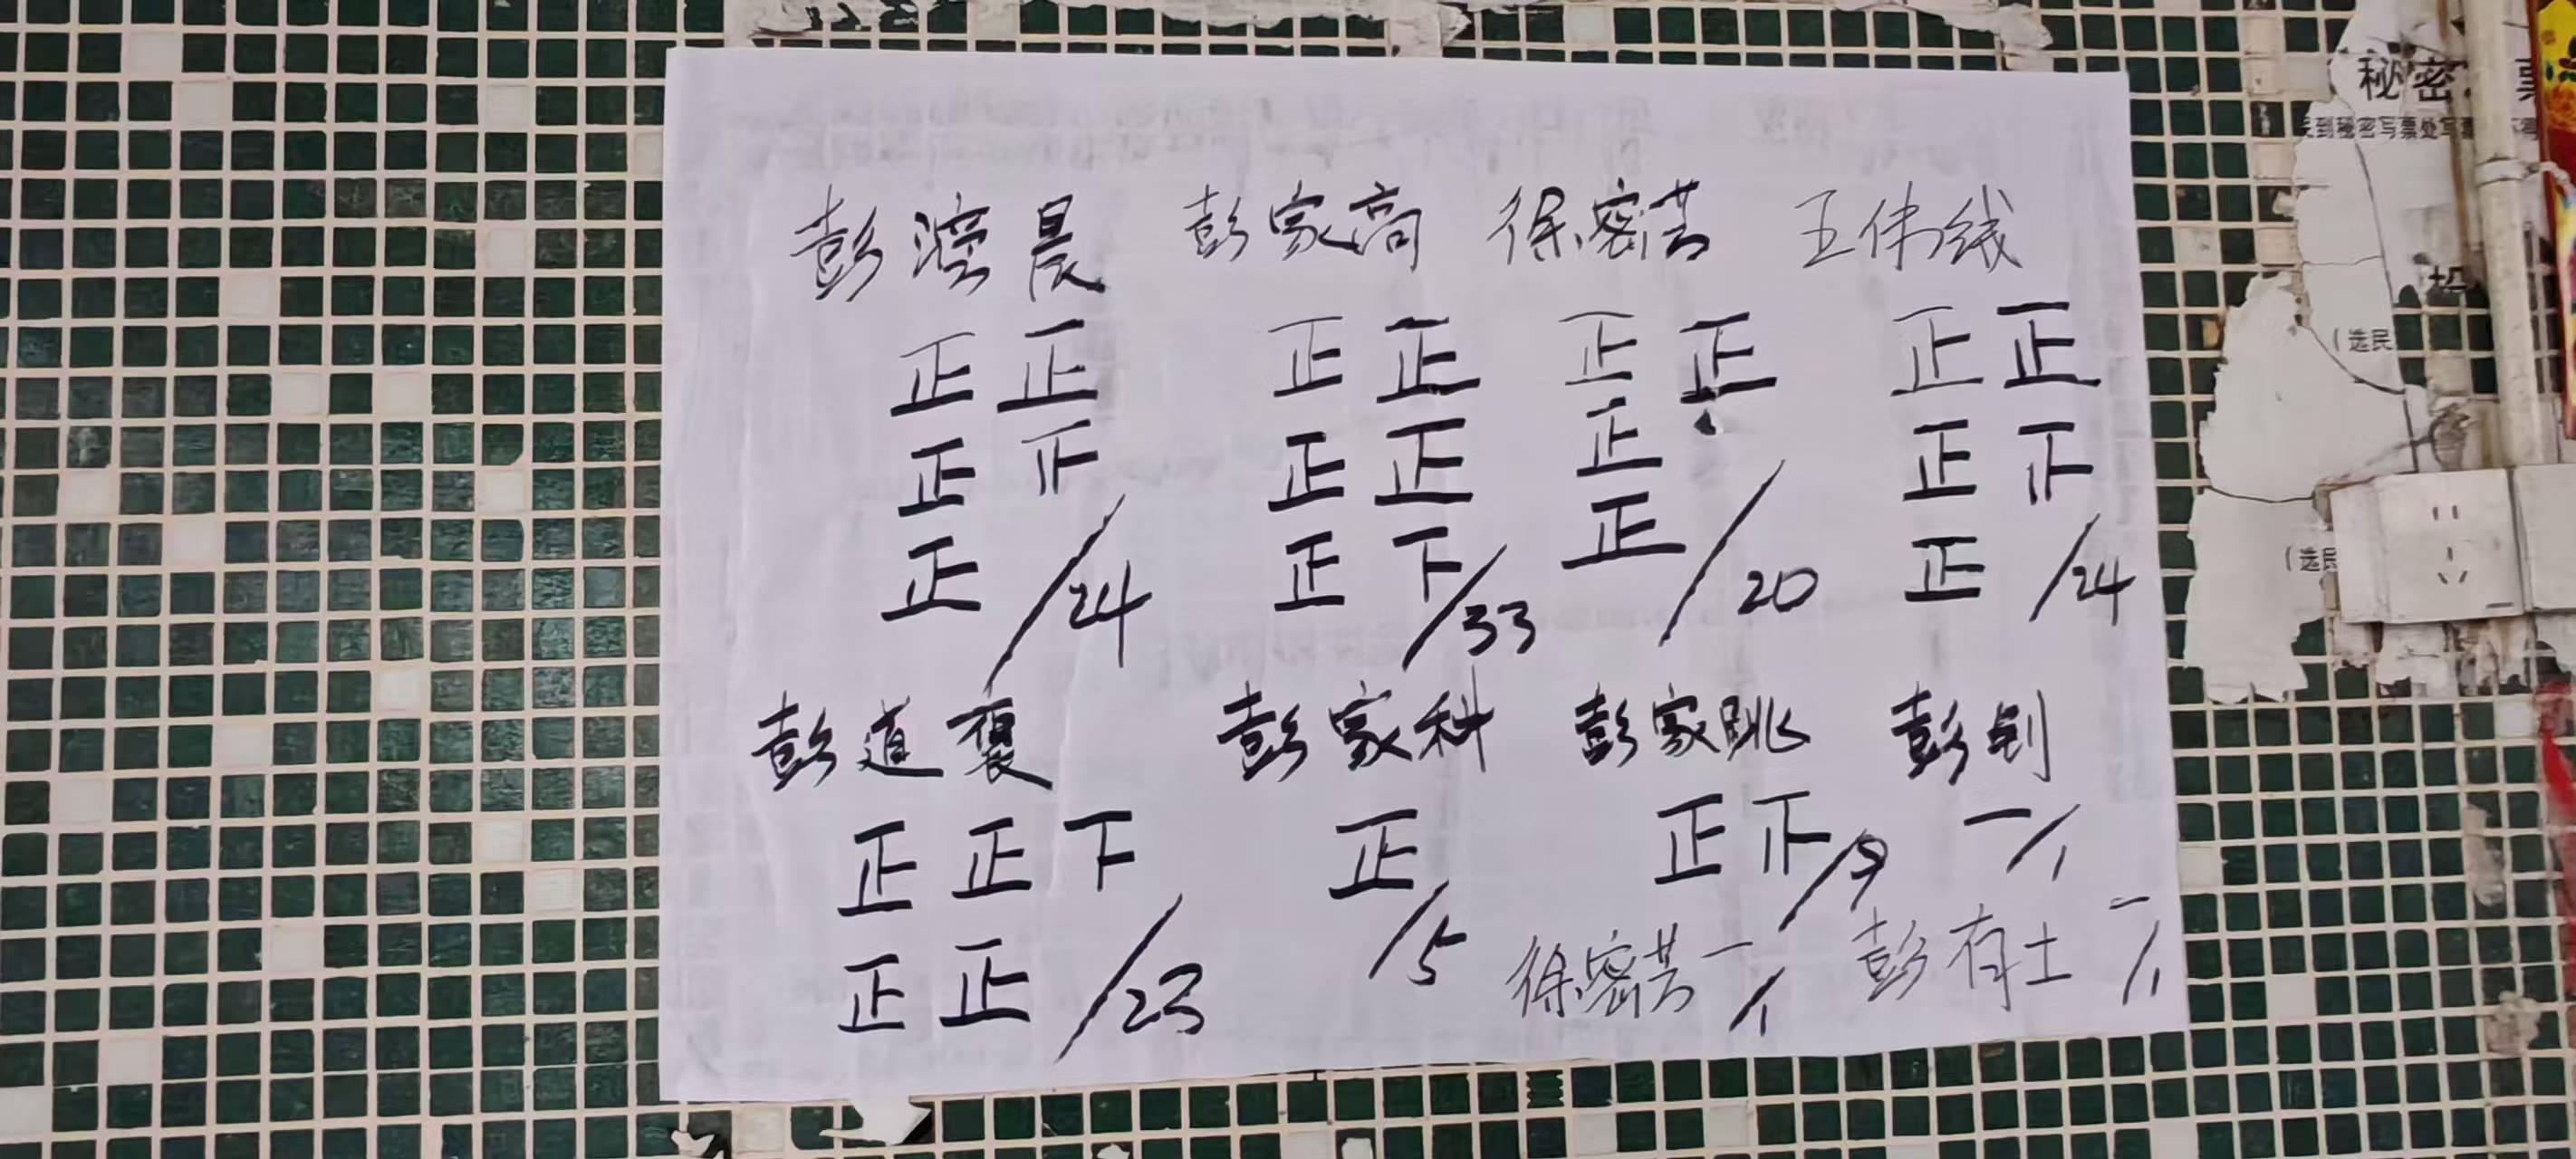 彭滢晨 彭家高 徐密芸 王伟线
正 正 正 正 正 正 正 正
正 正 正 正 正 正
正 /24 正 下 /33 正 /20 正 /24
彭道 彭家科 彭家跳 彭钊
正 正 下 正 /5 正 /9 一 /1
正 正 /23 徐密芸 一 /1 彭有土 一 /1
秘密 票
到秘密写票处写票
(选民
(选民